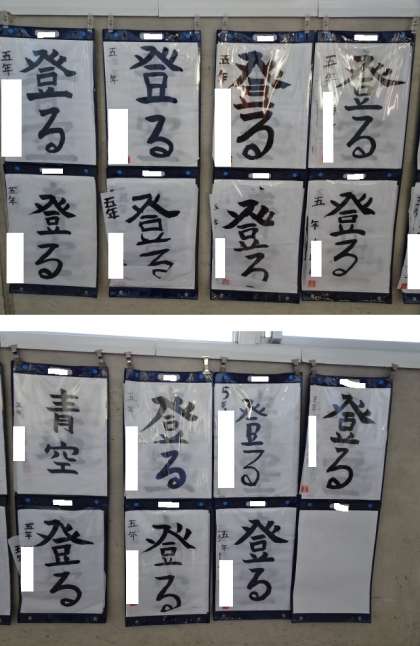 五年
登る
五年
登る
五年
登る
五年
登る
五年
登る
五年
登る
登る
五年
登る
青空
五年
登る
5年
登る
登る
五年
登る
五年
登る
五年
登る